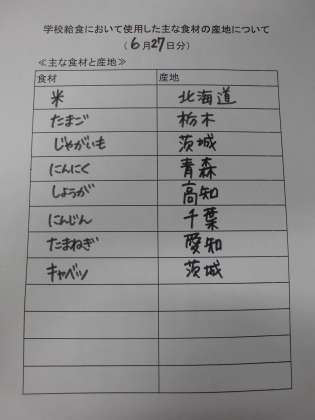 学校給食において使用した主な食材の産地について
(6月27日分)
≪主な食材と産地≫
食材 産地
米 北海道
たまご 栃木
じゃがいも 茨城
にんにく 青森
しょうが 高知
にんじん 千葉
たまねぎ 愛知
キャベツ 茨城